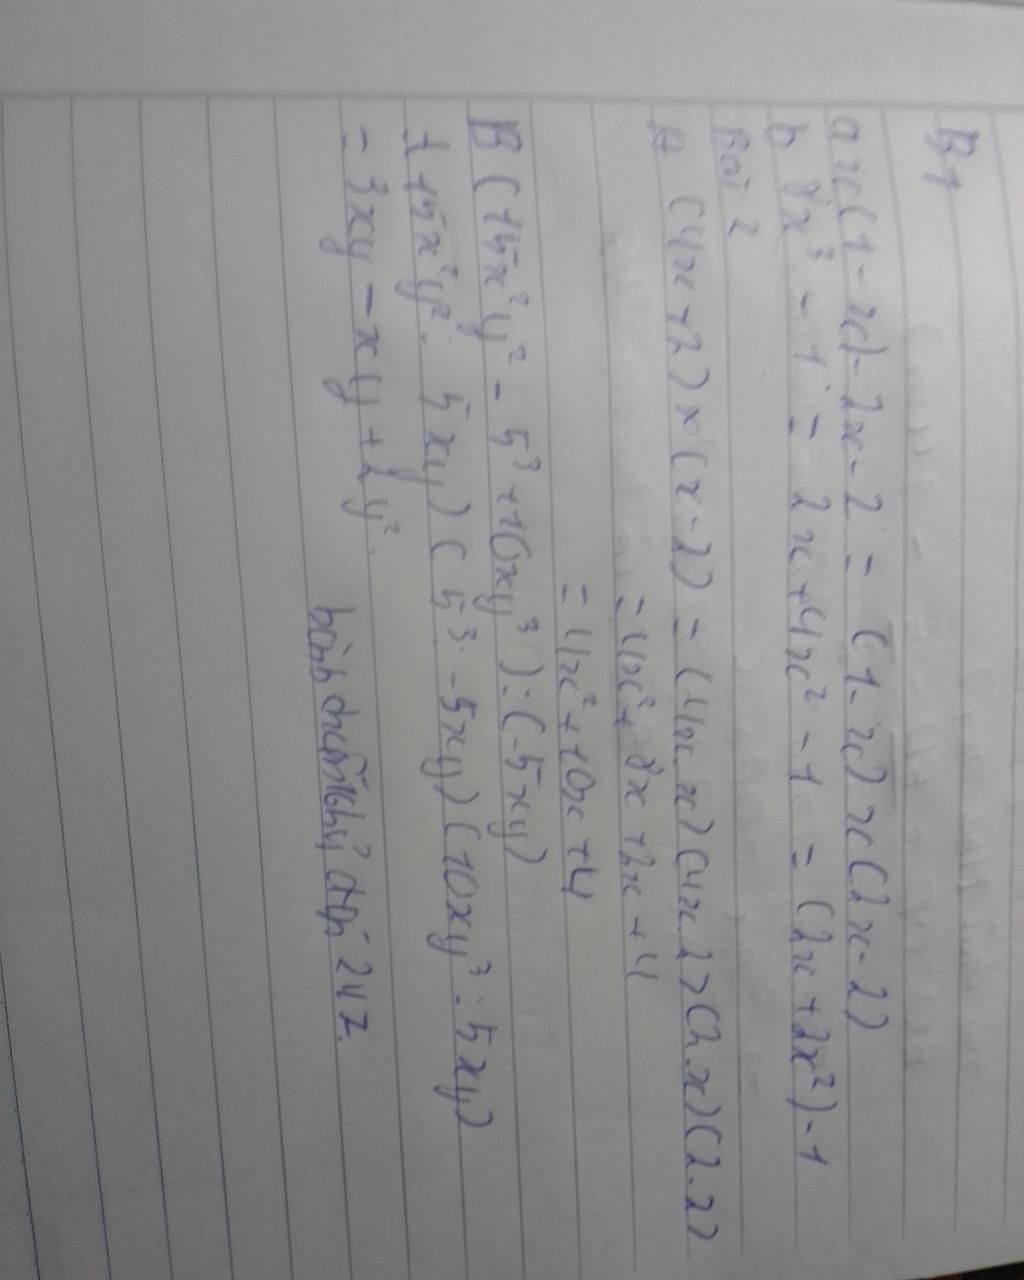 B1
a x(1-x)-2x-2 = (1-x)x(2x-2)
b 8x³ - 1 = 2x+4x² - 1 = (2x+2x²)-1
Bài 2
A (4x+2)x(x-2) = (4x.x)(4x.2)(2.x)(2.2)
= 4x²+8x+2x+4
= 4x²+10x+4
B (15x²y² - 5³+10xy³):(-5xy)
15x²y²: 5xy)(5³-5xy)(10xy³:5xy)
- 3xy - xy+2y².
bình 24 z.